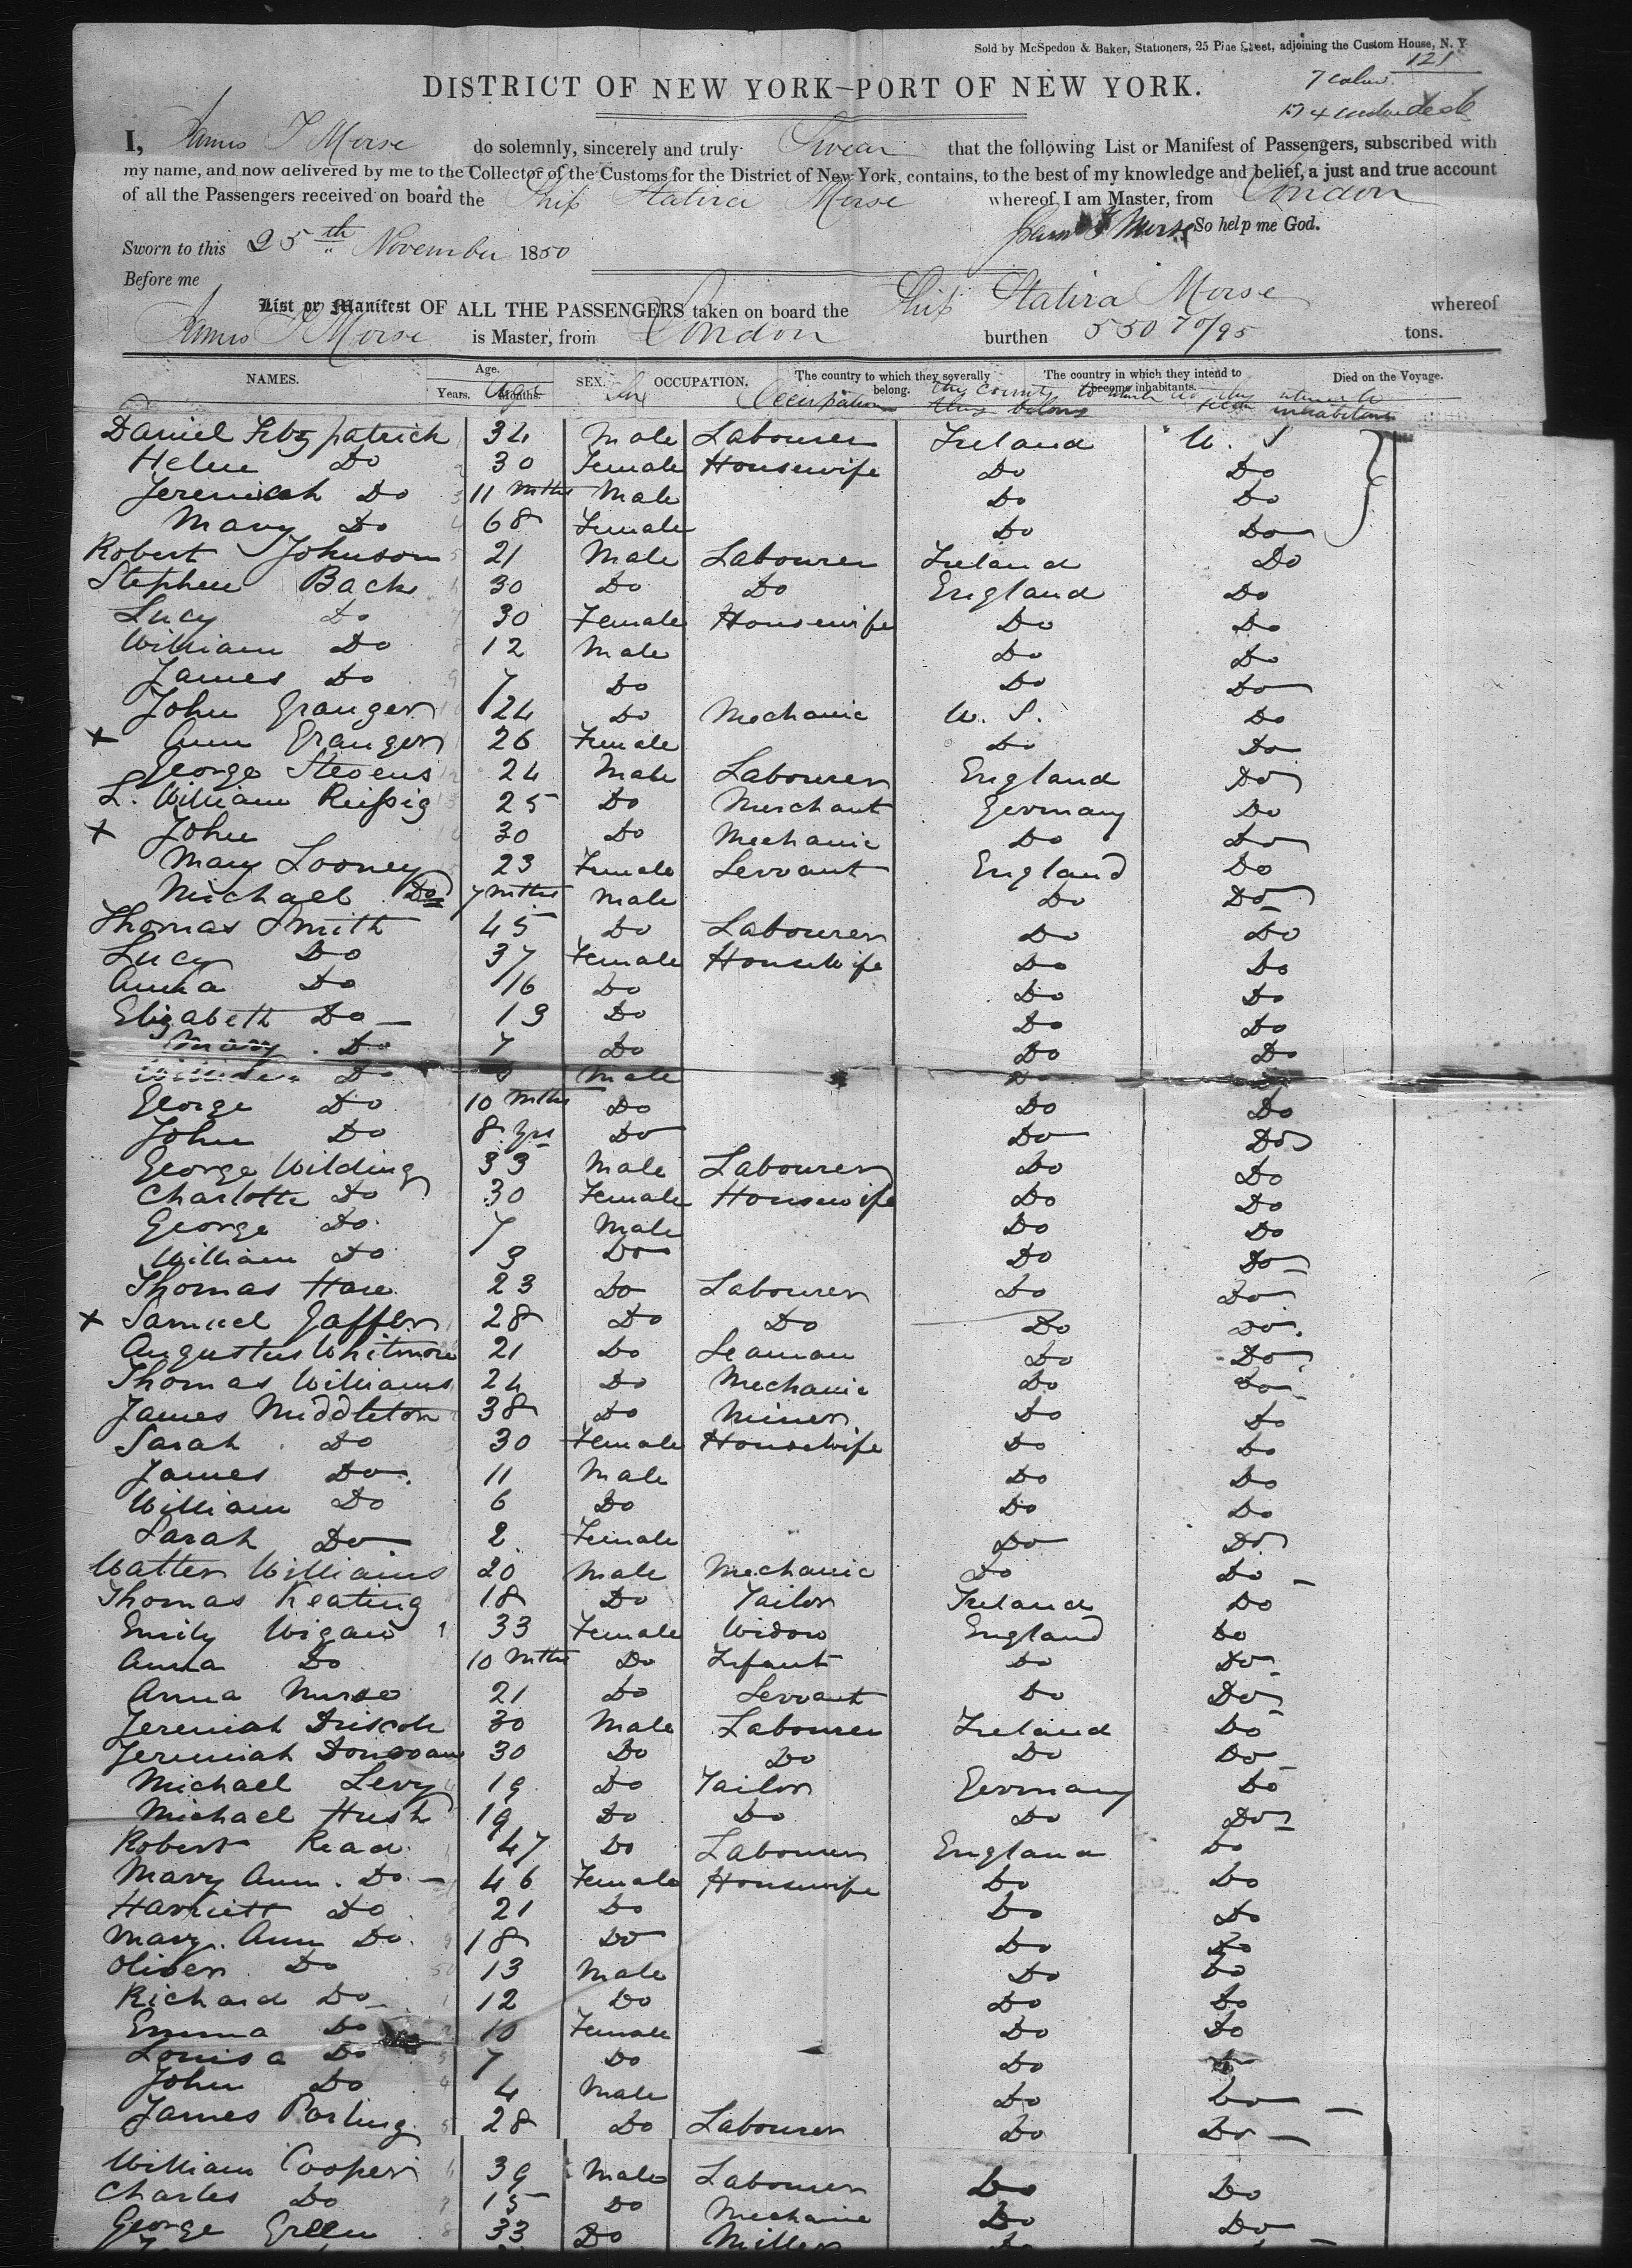 Sold by McSpedon & Baker, Stationers, 25 Pine Street, adjoining the Custom House, N. Y
121
7 cabin
DISTRICT OF NEW YORK–PORT OF NEW YORK.
I, James T Morse do solemnly, sincerely and truly Swear that the following List or Manifest of Passengers, subscribed with
my name, and now delivered by me to the Collector of the Customs for the District of New York, contains, to the best of my knowledge and belief, a just and true account
of all the Passengers received on board the Ship Statira Morse whereof I am Master, from London
James T Morse So help me God.
Sworn to this 25th November 1850
Before me
List or Manifest OF ALL THE PASSENGERS taken on board the Ship Statira Morse whereof
James T Morse is Master, from London burthen 550 70/95 tons.
NAMES. Age. Years. Months. SEX. OCCUPATION. The country to which they severally belong. The country in which they intend to become inhabitants. Died on the Voyage.
Age Sex Occupation the country they belong inhabitants
Daniel Fitzpatrick 34 Male Labourer Ireland U. S
Helen Do 30 Female Housewife Do Do
Jeremiah Do 11 mths Male Do Do
Mary Do 68 Female Do Do
Robert Johnson 21 Male Labourer Ireland Do
Stephen Back 30 Do Do England Do
Lucy Do 30 Female Housewife Do Do
William Do 12 Male Do Do
James Do 7 Do Do Do
John Granger 24 Do Mechanic U. S. Do
+ Ann Granger 26 Female Do Do
George Stevens 24 Male Labourer England Do
L. William Reissig 25 Do Merchant Germany Do
+ John 30 Do Mechanic Do Do
Mary Looney 23 Female Servant England Do
Michael Do 7 mths Male Do Do
Thomas Smith 45 Do Labourer Do Do
Lucy Do 37 Female Housewife Do Do
Anna Do 16 Do Do Do
Elizabeth Do 13 Do Do Do
Mary Do 7 Do Do Do
Do Male Do
George Do 10 mths Do Do Do
John Do 8 yrs Do Do Do
George Wilding 33 Male Labourer Do Do
Charlotte Do 30 Female Housewife Do Do
George Do 7 Male Do Do
William Do 3 Do Do Do
Thomas Hare 23 Do Labourer Do Do
+ Samuel Jaffer 28 Do Do Do Do
Augustus Whitmore 21 Do Seaman Do Do
Thomas Williams 24 Do Mechanic Do Do
James Middleton 38 Do Miner Do Do
Sarah Do 30 Female Housewife Do Do
James Do 11 Male Do Do
William Do 6 Do Do Do
Sarah Do 2 Female Do Do
Walter Williams 20 Male Mechanic Do Do
Thomas Keating 18 Do Tailor Ireland Do
Emily 33 Female Widow England Do
Anna Do 10 mths Do Infant Do Do
Anna Nurse 21 Do Servant Do Do
Jeremiah Driscoll 30 Male Labourer Ireland Do
Jeremiah Donovan 30 Do Do Do Do
Michael Levy 19 Do Tailor Germany Do
Michael Hush 19 Do Do Do Do
Robert Read 47 Do Labourer England Do
Mary Ann Do 46 Female Housewife Do Do
Harriett Do 21 Do Do Do
Mary Ann Do 18 Do Do Do
Oliver Do 13 Male Do Do
Richard Do 12 Do Do Do
Emma Do 10 Female Do Do
Louisa Do 7 Do Do Do
John Do 4 Male Do Do
James Parling 28 Do Labourer Do Do
William Cooper 39 Male Labourer Do Do
Charles Do 15 Do Mechanic Do Do
George Green 33 Do Miller Do